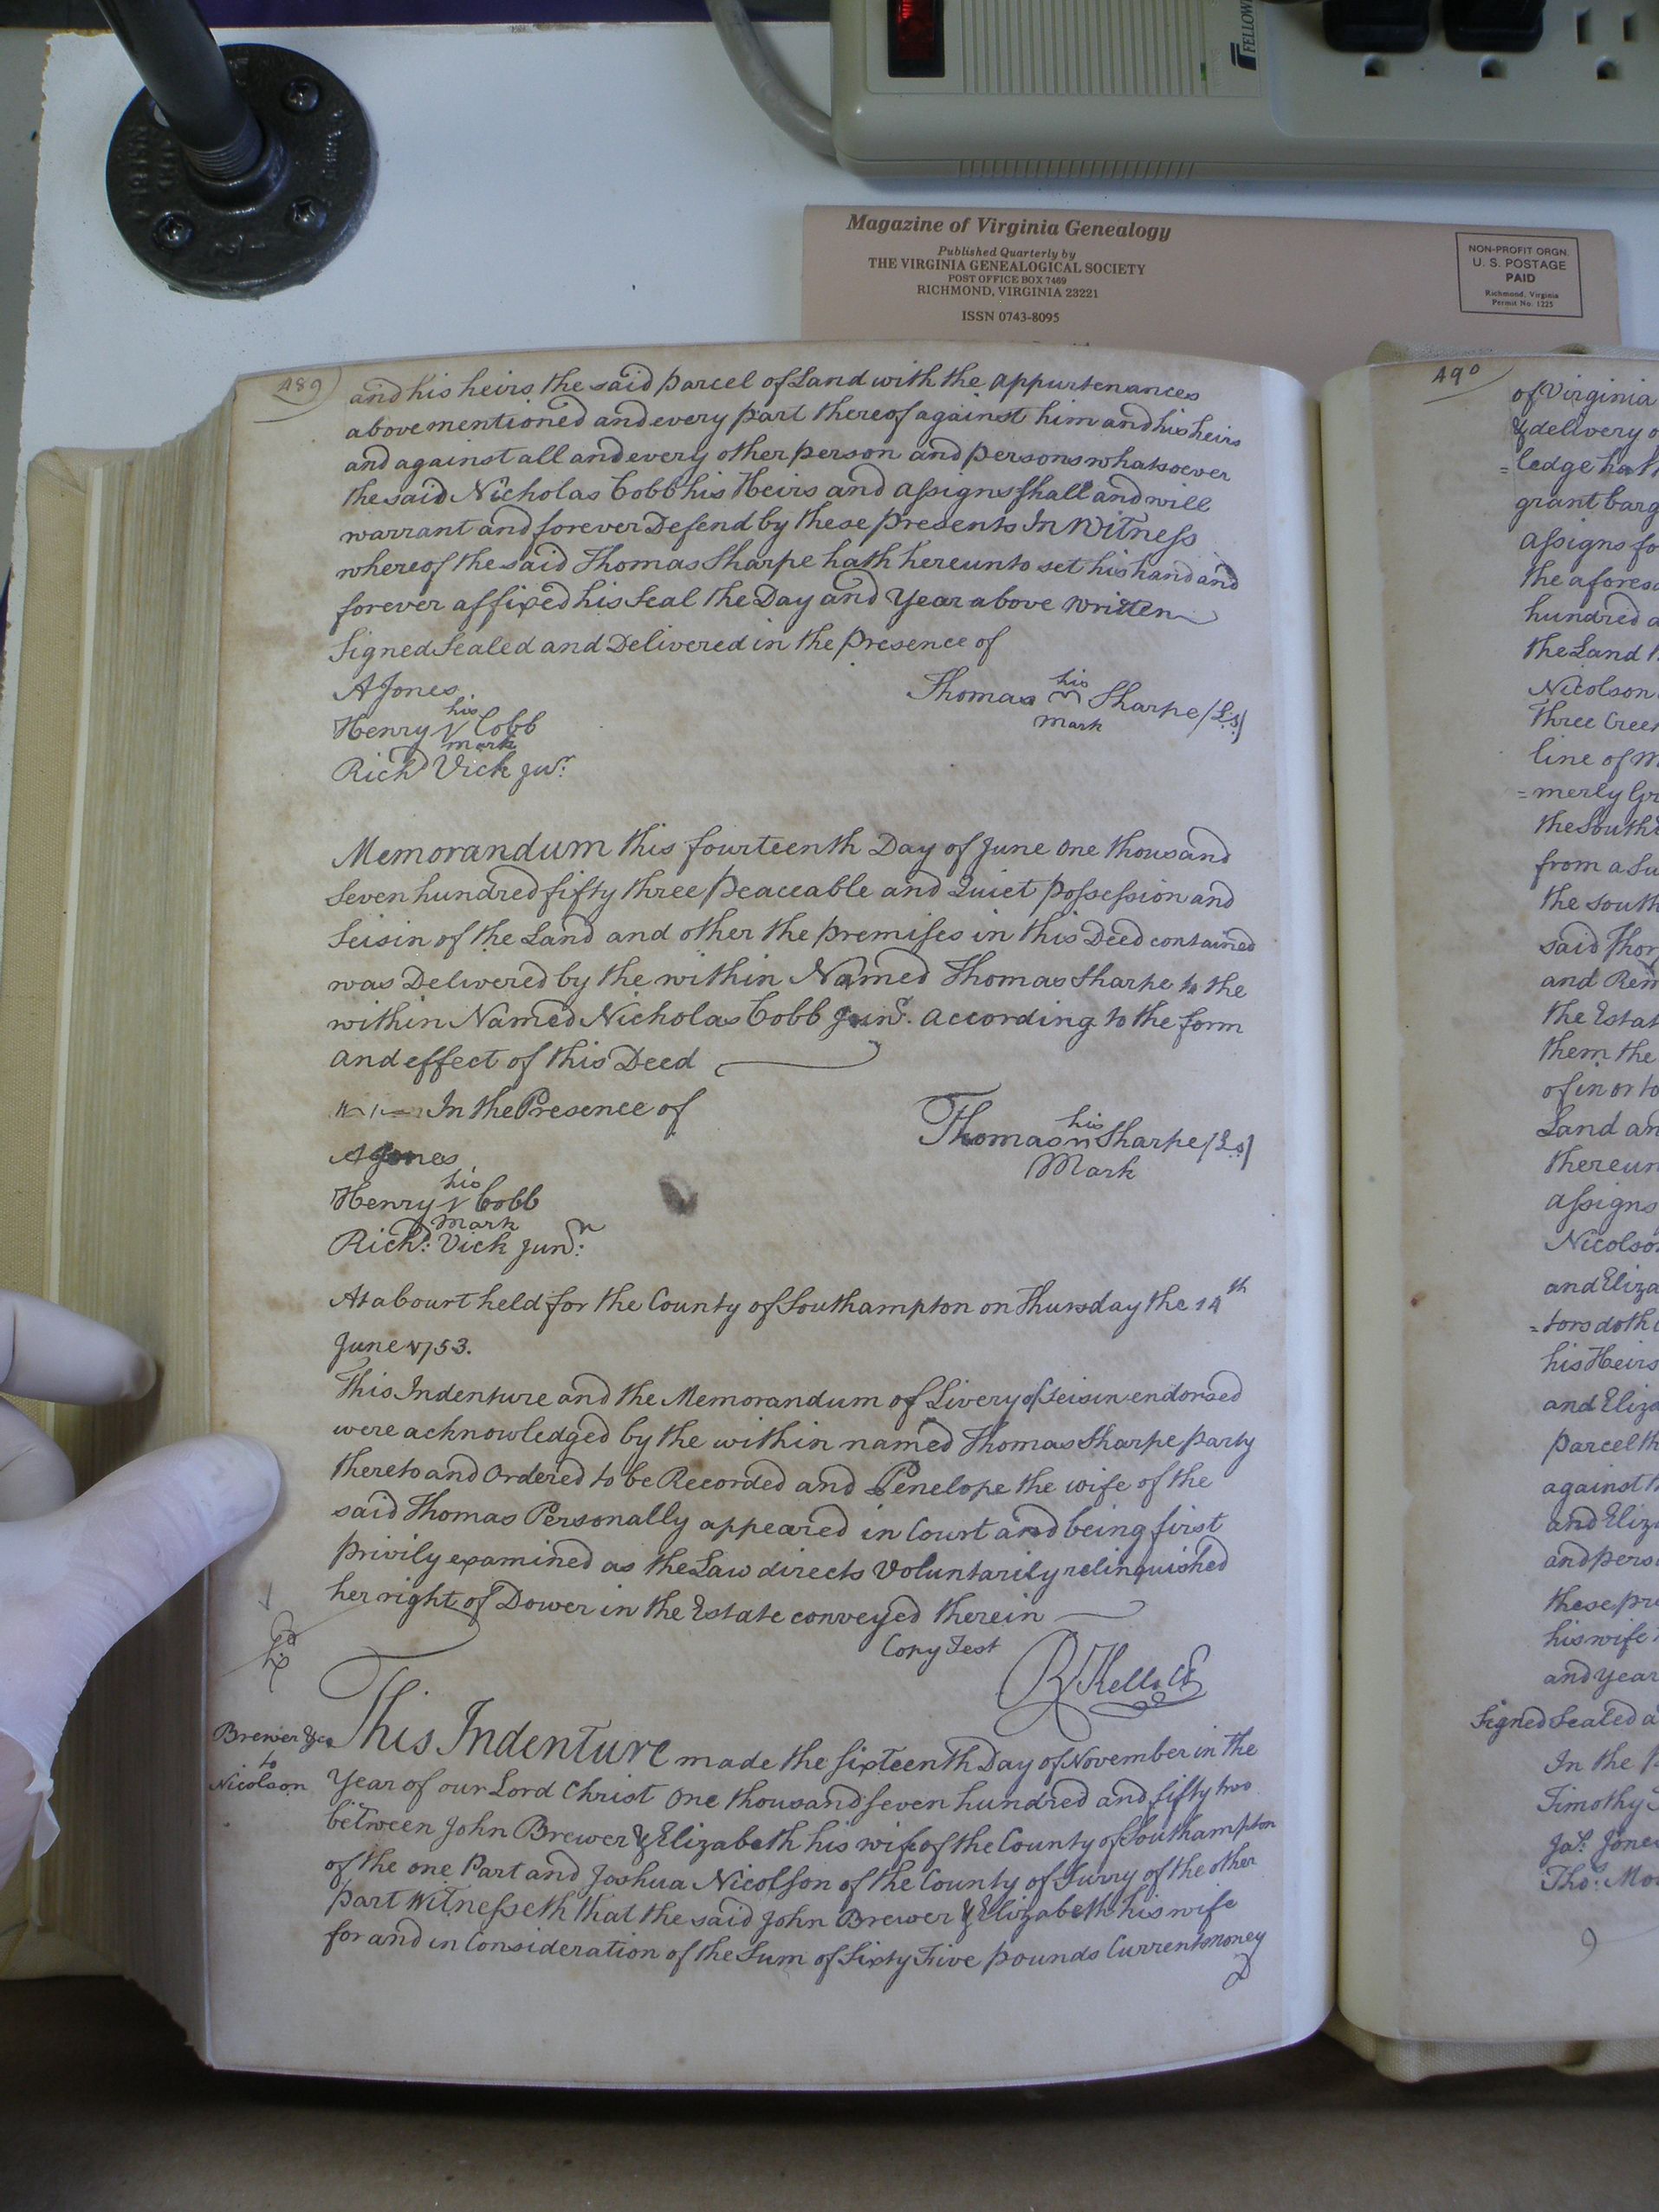 FELLOW
Magazine of Virginia Genealogy
Published Quarterly by
THE VIRGINIA GENEALOGICAL SOCIETY
POST OFFICE BOX 7469
RICHMOND, VIRGINIA 23221
ISSN 0743-8095
NON-PROFIT ORGN.
U. S. POSTAGE
PAID
Richmond, Virginia
Permit No. 1225
489
and his heirs the said parcel of Land with the appurtenances
above mentioned and every part thereof against him and his heirs
and against all and every other person and persons whatsoever
the said Nicholas Cobb his Heirs and assigns shall and will
warrant and forever Defend by these presents In Witness
whereof the said Thomas Sharpe hath hereunto set his hand and
forever affixed his Seal the Day and Year above written
Signed Sealed and Delivered in the presence of
A Jones.
Thomas his mark Sharpe (Ls)
Henry his mark Cobb
Richd Vick Junr.
Memorandum this fourteenth Day of June one thousand
Seven hundred fifty three peaceable and Quiet possession and
Seisin of the Land and other the premises in this Deed contained
was Delivered by the within Named Thomas Sharpe to the
within Named Nicholas Cobb Junr. according to the form
and effect of this Deed
In the Presence of
Thomas his Mark Sharpe (Ls)
A Jones
Henry his Mark Cobb
Richd: Vick Junr:
At a Court held for the County of Southampton on Thursday the 14th
June 1753.
This Indenture and the Memorandum of Livery of Seisin endorsed
were acknowledged by the within named Thomas Sharpe party
thereto and Ordered to be Recorded and Penelope the wife of the
said Thomas Personally appeared in Court and being first
privily examined as the Law directs Voluntarily relinquished
her right of Dower in the Estate conveyed therein
Copy Test
Brewer &ca
to
Nicolson
This Indenture made the sixteenth Day of November in the
Year of our Lord Christ One thousand seven hundred and fifty two
between John Brewer & Elizabeth his wife of the County of Southampton
of the one Part and Joshua Nicolson of the County of Surry of the other
part Witnesseth that the said John Brewer & Elizabeth his wife
for and in Consideration of the Sum of Sixty Five pounds Current money
490
of Virginia
& delivery
ledge hath
grant barg
assigns fo
the afores
hundred a
the Land
Nicolson
Three Cree
line of
=merly Gr
the South
from a Su
the south
said Thor
and Rem
the Estat
them the
of in or to
Land an
thereun
assigns
Nicolson
and Eliza
=tors doth
his Heirs
and Eliza
parcel th
against
and Eliza
and perso
these pre
his wife
and year
Signed Sealed a
In the p
Timothy
Jas: Jones
Thos: Mo